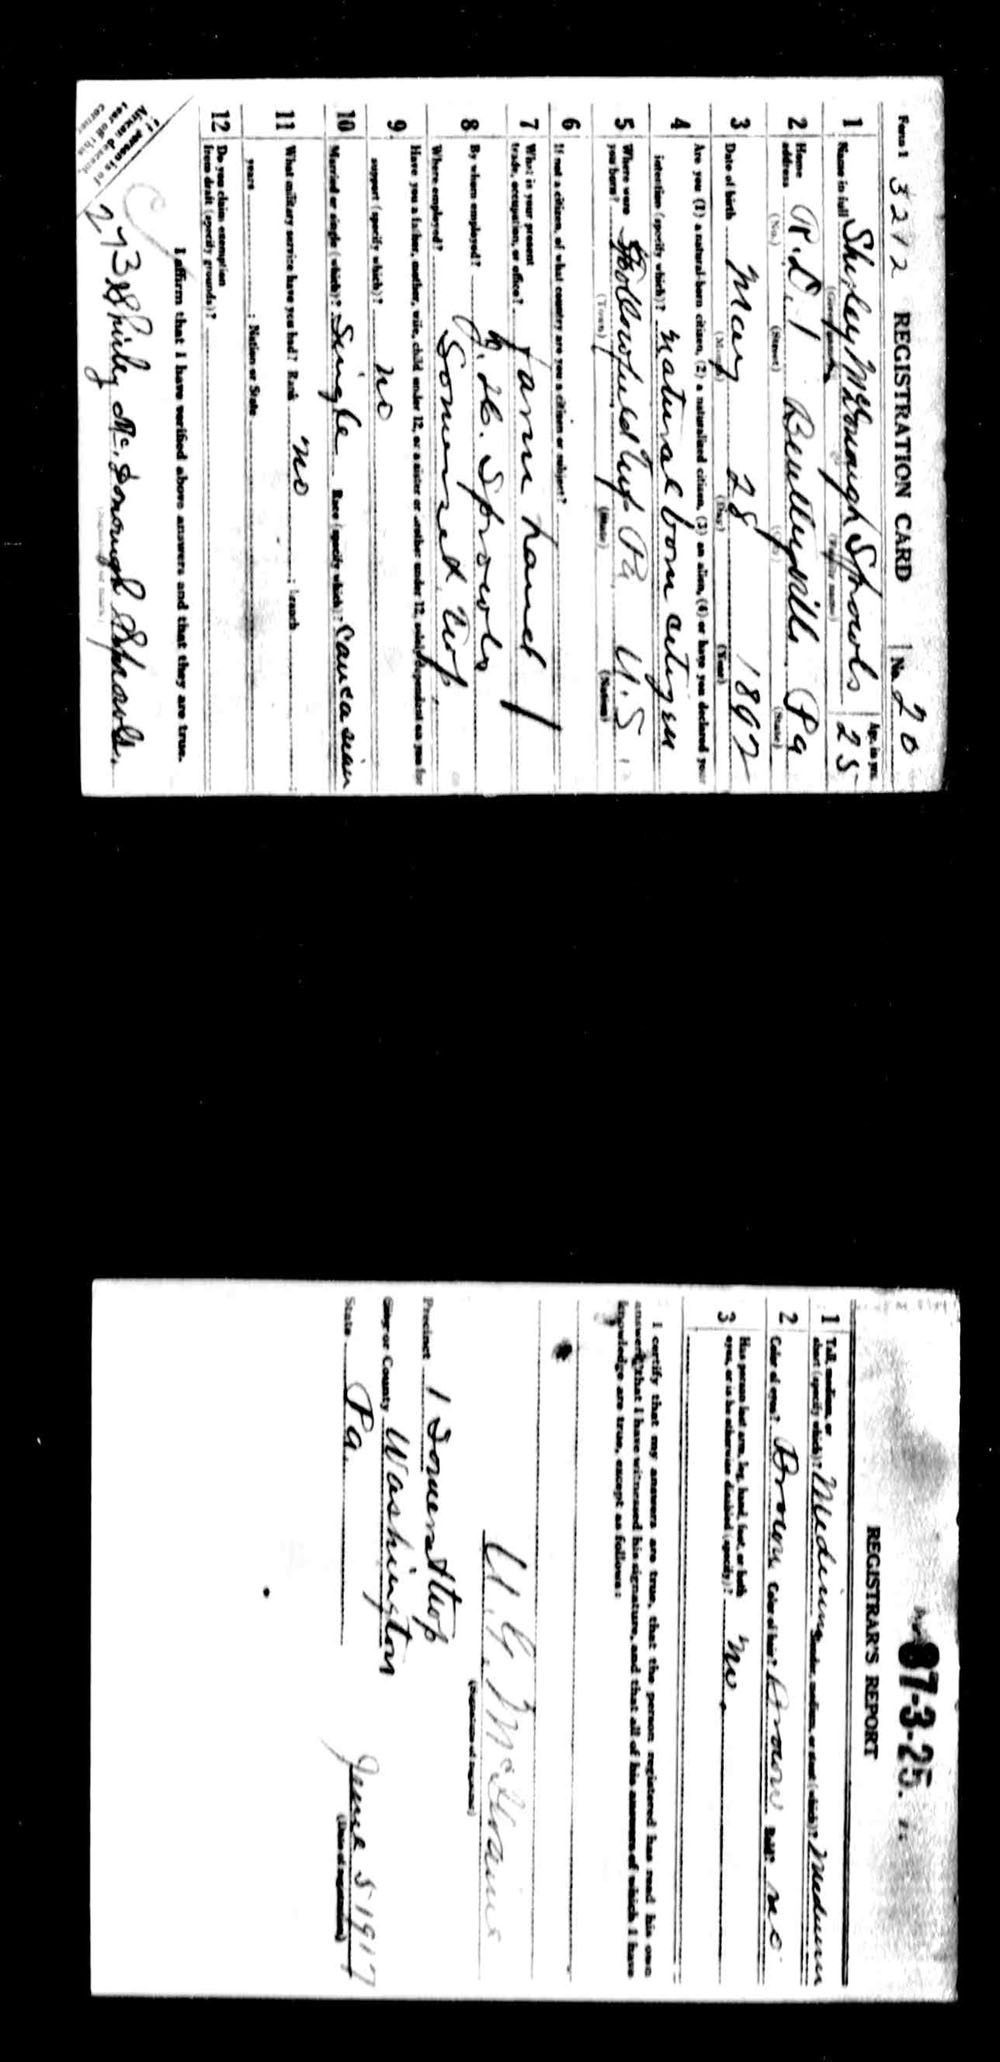 Form 1 3212 REGISTRATION CARD No. 20
1 Name in full Shirley McDonaugh Sprowls Age, in yrs. 25
(Given name) (Family name)
2 Home address R.D. 1 Bentleyville Pa
(No.) (Street) (City) (State)
3 Date of birth May 28 1892
(Month) (Day) (Year)
4 Are you (1) a natural-born citizen, (2) a naturalized citizen, (3) an alien, (4) or have you declared your
intention (specify which)? Natural born citizen
5 Where were you born? Fallowfield Twp Pa U.S
(Town) (State) (Nation)
6 If not a citizen, of what country are you a citizen or subject?
7 What is your present trade, occupation, or office? Farm hand
8 By whom employed? Sprowls
Where employed? Somerset Twp
9 Have you a father, mother, wife, child under 12, or a sister or brother under 12, solely dependent on you for
support (specify which)? no
10 Married or single (which)? Single Race (specify which)? Caucasian
11 What military service have you had? Rank no ; branch
years ; Nation or State
12 Do you claim exemption from draft (specify grounds)?
I affirm that I have verified above answers and that they are true.
273 Shirley Mc. Donough Sprowls.
(Signature or mark)
If person is of African descent, tear off this corner
37-3-25.
REGISTRAR'S REPORT
1 Tall, medium, or short (specify which)? Medium Slender, medium, or stout (which)? Medium
2 Color of eyes? Brown Color of hair? Brown Bald? no
3 Has person lost arm, leg, hand, foot, or both eyes, or is he otherwise disabled (specify)? no.
I certify that my answers are true, that the person registered has read his own
answers, that I have witnessed his signature, and that all of his answers of which I have
knowledge are true, except as follows:
U. G. McIlvaine
(Signature of registrar)
Precinct 1 Somerset twp
City or County Washington
State Pa. June 5 1917
(Date of registration)